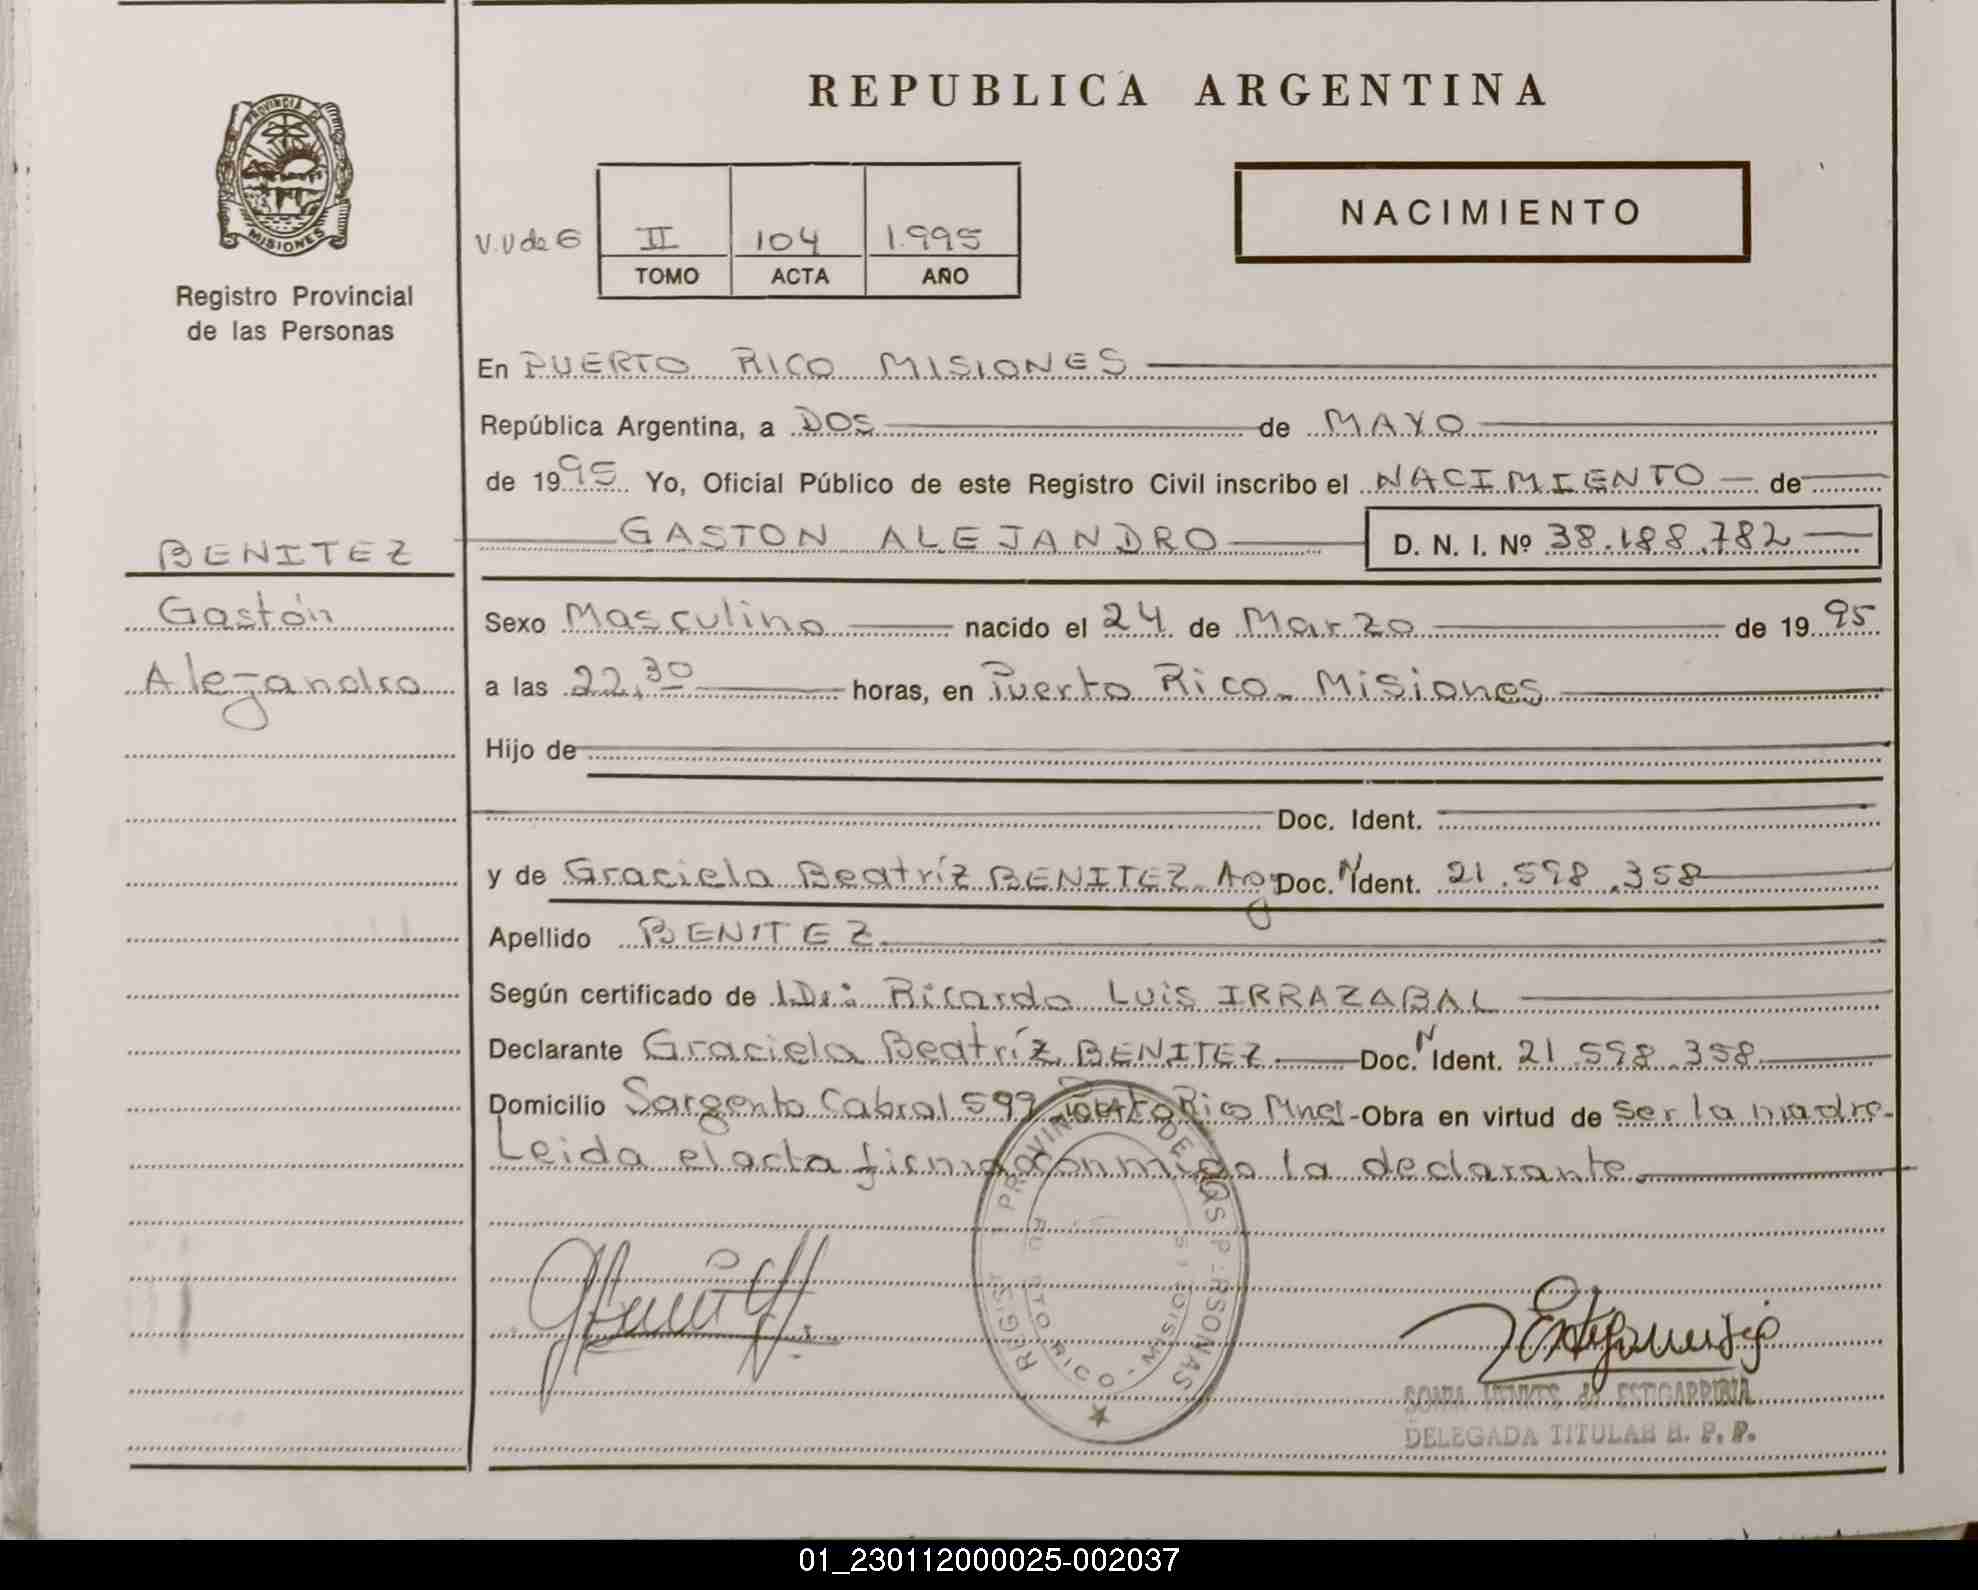 REPUBLICA ARGENTINA
PROVINCIA DE MISIONES
Registro Provincial
de las Personas
V.V de G
II 104 1.995
TOMO ACTA AÑO
NACIMIENTO
En PUERTO RICO MISIONES
República Argentina, a DOS de MAYO
de 1995 Yo, Oficial Público de este Registro Civil inscribo el NACIMIENTO de
GASTON ALEJANDRO D. N. I. Nº 38.188.782
BENITEZ
Gastón
Alejandro
Sexo Masculino nacido el 24 de Marzo de 1995
a las 22,30 horas, en Puerto Rico - Misiones
Hijo de
Doc. Ident.
y de Graciela Beatríz BENITEZ Arg Doc. N Ident. 21.598.358
Apellido BENITEZ
Según certificado de Dr: Ricardo Luis IRRAZABAL
Declarante Graciela Beatríz BENITEZ Doc. N Ident. 21.598.358
Domicilio Sargento Cabral 599 Pto Rico Mnes - Obra en virtud de ser la madre-
Leida el acta firma conmigo la declarante
REGIST PROVINCIAL DE LAS PERSONAS
PUERTO RICO - MISIONES
SONIA HENKES de ESTIGARRIBIA
DELEGADA TITULAR R. P. P.
01_230112000025-002037